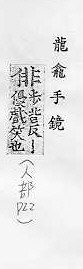 龍龕手鏡
俳 步皆反｜
俳優戲笑也
(人部
P22)